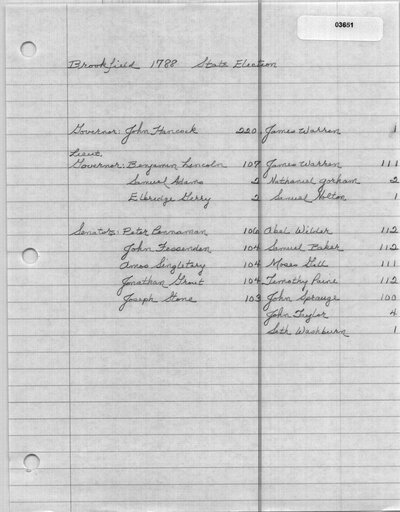 03651
Brookfield 1788 State Election
Governor: John Hancock 220 James Warren 1
Lieut.
Governor: Benjamin Lincoln 107 James Warren 111
Samuel Adams 2 Nathaniel Gorham 2
Elbridge Gerry 2 Samuel Holton 1
Senators: Peter Pennaman 106 Abel Wilder 112
John Fessenden 104 Samuel Baker 112
Amos Singletary 104 Moses Gill 111
Jonathan Grout 104 Timothy Paine 112
Joseph Stone 103 John Sprauge 100
John Taylor 4
Seth Washburn 1